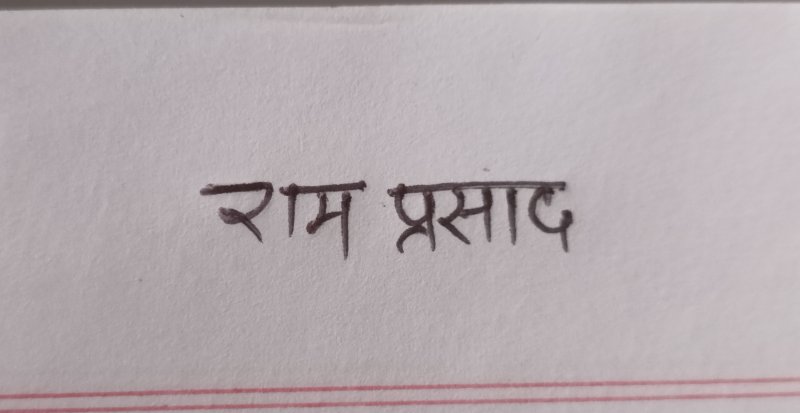 राम प्रसाद